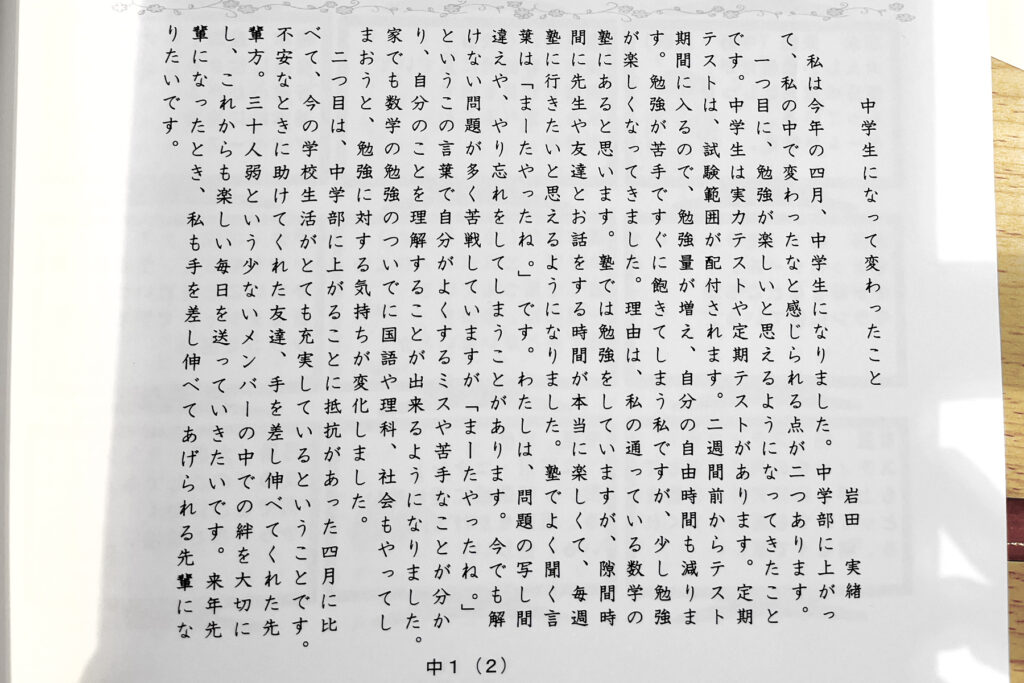 中学生になって変わったこと
岩田　実緒
私は今年の四月、中学生になりました。中学部に上がっ
て、私の中で変わったなと感じられる点が二つあります。
一つ目に、勉強が楽しいと思えるようになってきたこと
です。中学生は実力テストや定期テストがあります。定期
テストは、試験範囲が配付されます。二週間前からテスト
期間に入るので、勉強量が増え、自分の自由時間も減りま
す。勉強が苦手ですぐに飽きてしまう私ですが、少し勉強
が楽しくなってきました。理由は、私の通っている数学の
塾にあると思います。塾では勉強をしていますが、隙間時
間に先生や友達とお話をする時間が本当に楽しくて、毎週
塾に行きたいと思えるようになりました。塾でよく聞く言
葉は「まーたやったね。」です。わたしは、問題の写し間
違えや、やり忘れをしてしまうことがあります。今でも解
けない問題が多く苦戦していますが「まーたやったね。」
というこの言葉で自分がよくするミスや苦手なことが分か
り、自分のことを理解することが出来るようになりました。
家でも数学の勉強のついでに国語や理科、社会もやってし
まおうと、勉強に対する気持ちが変化しました。
二つ目は、中学部に上がることに抵抗があった四月に比
べて、今の学校生活がとても充実しているということです。
不安なときに助けてくれた友達、手を差し伸べてくれた先
輩方。三十人弱という少ないメンバーの中での絆を大切に
し、これからも楽しい毎日を送っていきたいです。来年先
輩になったとき、私も手を差し伸べてあげられる先輩にな
りたいです。
中１（２）